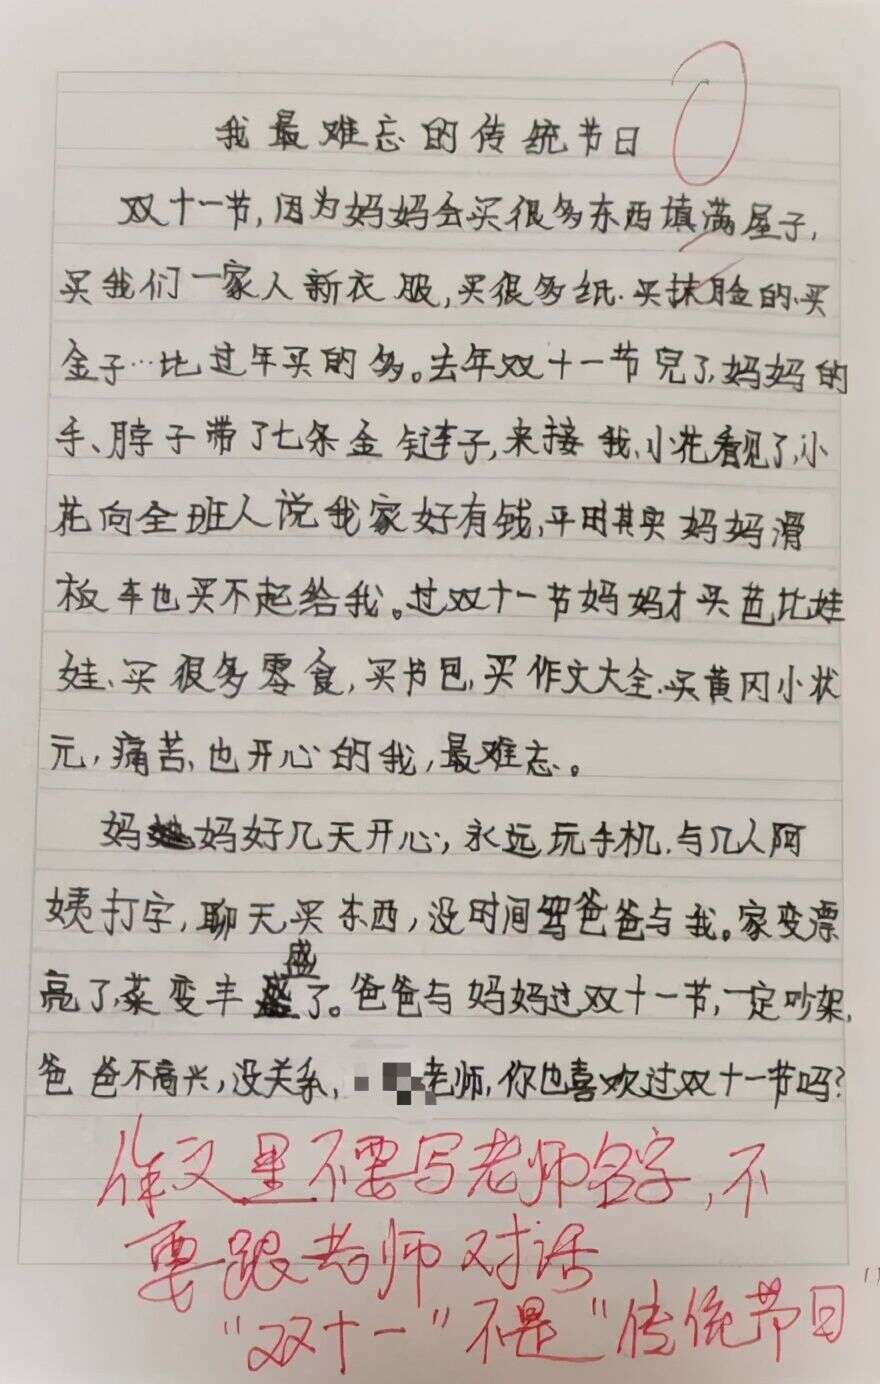 我最难忘的传统节日
双十一节,因为妈妈会买很多东西填满屋子,
买我们一家人新衣服,买很多纸.买抹脸的.买
金子…比过年买的多。去年双十一节完了,妈妈的
手、脖子带了七条金链子,来接我,小花看见了,小
花向全班人说我家好有钱,平时其实妈妈滑
板车也买不起给我。过双十一节妈妈才买芭比娃
娃、买很多零食,买书包,买作文大全.买黄冈小状
元,痛苦,也开心的我,最难忘。
妈妈好几天开心,永远玩手机.与几人阿
姨打字,聊天买东西,没时间骂爸爸与我。家变漂
亮了,菜变丰盛了。爸爸与妈妈过双十一节,一定吵架,
爸爸不高兴,没关系,老师,你也喜欢过双十一节吗?
作文里不要写老师名字,不
要跟老师对话
"双十一"不是"传统节日"